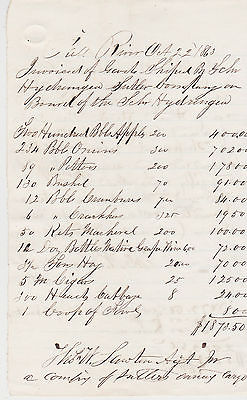 Fall River Oct 22 1863
Invoice of Goods Shiped By Schr
Hydrangea Sutler Company on
Board of the Schr Hydrangea
Two Hundred Bbls Apples 200 400.00
234 Bbls Onions 300 702.00
89 " Potatoes 200 178.00
130 Bushel 70 91.00
12 Bbls Cranburies 700 84.00
6 " Crackers 325 19.50
50 Kets Mackerel 200 100.00
12 Doz Bottles Native Grape Wine 600 72.00
Tons Hay 2000 70.00
5 M Cigars 25 125.00
300 Heads Cabbage 8 24.00
1 Coop of Fowl 8.00
$1873.50
Thos W. Agt for
a compny of Sutlers owning cargo